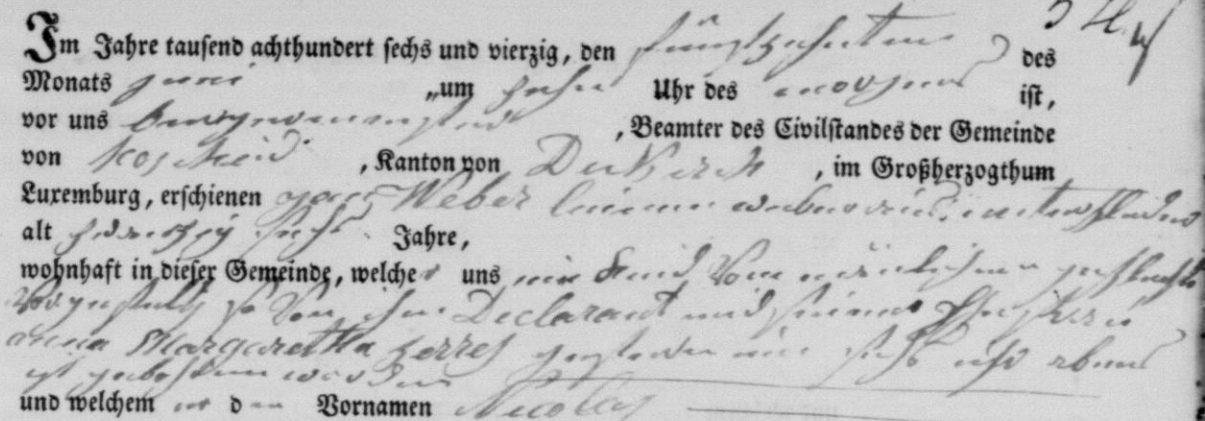 Im Jahre tausend achthundert sechs und vierzig, den fünfzehnten des
Monats Juni „um zehn Uhr des morgens ist,
vor uns Burgermeister, Beamter des Civilstandes der Gemeinde
von Hoscheid, Kanton von Diekirch, im Großherzogthum
Luxemburg, erschienen Weber
alt vierzig sechs Jahre,
wohnhaft in dieser Gemeinde, welcher uns ein Kind vom männlichen geschlechte
vorgestellt so von ihm Declarant und seiner
anna Margaretha Zerres gestern um sechs uhr abens
ist gebohren worden
und welchem er den Vornamen Nicolas